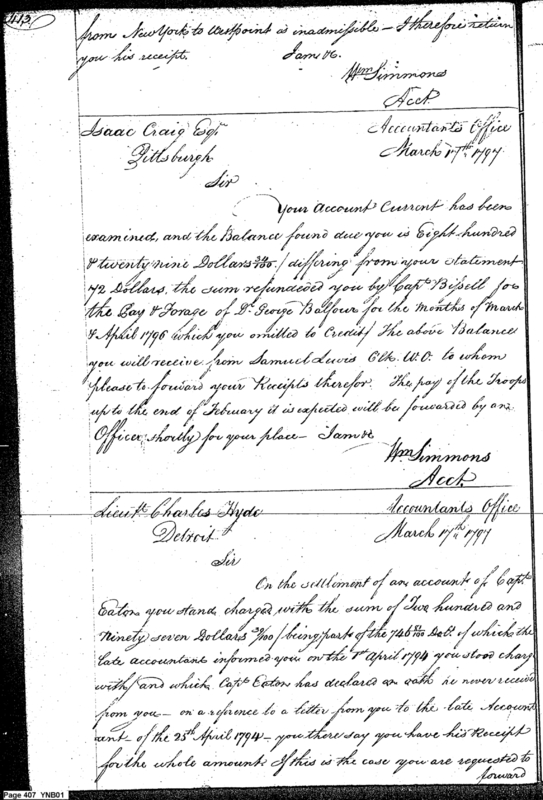 413
from New York to Westpoint is inadmissible — I therefore return
you his receipt. I am &c.
Wm Simmons
Acct
Isaac Craig Esqr. Accountants Office
Pittsburgh March 17th 1797
Sir
Your Account Current has been
examined, and the Balance found due you is Eight hundred
& twenty nine Dollars /100. / differing from your statement
72 Dollars, the sum refunded you by Capt. Bissell for
the Pay & Forage of Dr. George Balfour for the Months of March
& April 1796 which you omitted to Credit / The above Balance
you will receive from Samuel Lewis Clk. W.O. to whom
please to forward your Receipts therefor. The pay of the Troops
up to the end of February it is expected will be forwarded by an
Officer shortly for your place — I am &c
Wm Simmons
Acct.
Lieut. Charles Hyde Accountants Office
Detroit March 17th 1797
Sir
On the settlement of an account of Capt.
Eaton you stand charged with the sum of Two hundred and
Ninety seven Dollars 30/100 / being part of the 746 /100 Dolls. of which the
late accountant informed you on the 1st April 1794 you stood charg
with / and which Capt. Eaton has declared on oath he never receive
from you — on a reference to a letter from you to the late Account
ant of the 25th April 1794 — you there say you have his Receipt
for the whole amount. If this is the case you are requested to
forward
Page 407 YNB01